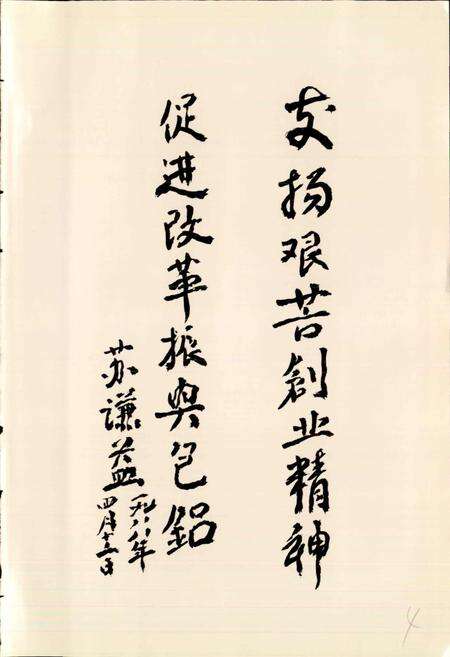 发扬艰苦創业精神
促进改革振興包鋁
苏谦益
一九八八年
四月十三日
4